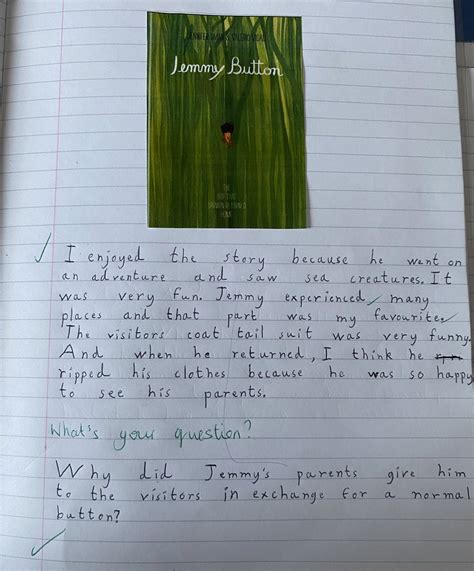 Jemmy Button
THE
I enjoyed the story because he went on
an adventure and saw sea creatures. It
was very fun. Jemmy experienced many
places and that part was my favourite.
The visitors coat tail suit was very funny.
And when he returned, I think he
ripped his clothes because he was so happy
to see his parents.
What's your question?
Why did Jemmy's parents give him
to the visitors in exchange for a normal
button?